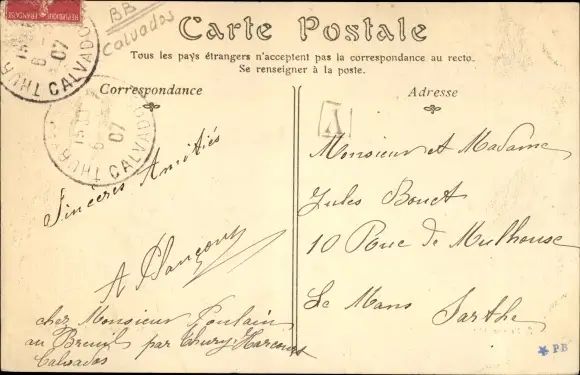 BB
Calvados
Carte Postale
Tous les pays étrangers n'acceptent pas la correspondance au recto.
Se renseigner à la poste.
Correspondance
Sincères Amitiés
chez Monsieur Poulain
au Breuil par Thury-Harcourt
Calvados
Adresse
A
Monsieur et Madame
Jules Bouet
10 Rue de Mulhouse
Le Mans Sarthe
15 30
6
07
CALVADOS
15 30
6
07
CALVADOS
PB